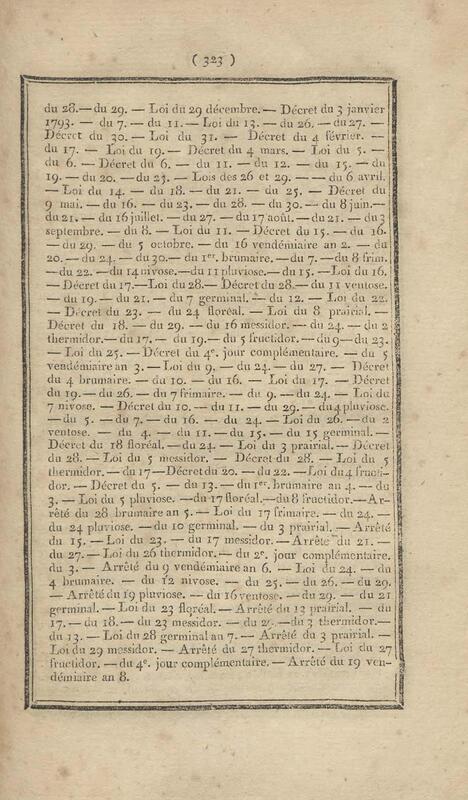 ( 323 )
du 28.—du 29. — Loi du 29 décembre. — Décret du 3 janvier
1793. — du 7. — du 11. — Loi du 13. — du 26. — du 27. —
Décret du 30. — Loi du 31. — Décret du 4 février. —
du 17. — Loi du 19. — Décret du 4 mars. — Loi du 5. —
du 6. — Décret du 6. — du 11. — du 12. — du 15. — du
19. — du 20. — du 23. — Lois des 26 et 29. — — du 6 avril.
— Loi du 14. — du 18. — du 21. — du 25. — Décret du
9 mai. — du 16. — du 23. — du 28. — du 30. — du 8 juin. —
du 21. — du 16 juillet. — du 27. — du 17 août. — du 21. — du 3
septembre. — du 8. — Loi du 11. — Décret du 15. — du 16.
— du 29. — du 5 octobre. — du 16 vendémiaire an 2. — du
20. — du 24. — du 30. — du 1er. brumaire. — du 7. — du 8 frim.
— du 22. — du 14 nivose. — du 11 pluviose. — du 15. — Loi du 16.
— Décret du 17. — Loi du 28. — Décret du 28. — du 11 ventose.
— du 19. — du 21. — du 7 germinal. — du 12. — Loi du 22.
— Décret du 23. — du 24 floréal. — Loi du 8 prairial. —
Décret du 18. — du 29. — du 16 messidor. — du 24. — du 2
thermidor. — du 17. — du 19. — du 5 fructidor. — du 9 — du 23.
— Loi du 25. — Décret du 4e. jour complémentaire. — du 5
vendémiaire an 3. — Loi du 9. — du 24. — du 27. — Décret
du 4 brumaire. — du 10. — du 16. — Loi du 17. — Décret
du 19. — du 26. — du 7 frimaire. — du 9. — du 24. — Loi du
7 nivose. — Décret du 10. — du 11. — du 29. — du 4 pluviose.
— du 5. — du 7. — du 16. — du 24. — Loi du 26. — du 2
ventose. — du 4. — du 11. — du 15. — du 15 germinal. —
Décret du 18 floréal. — du 24. — Loi du 3 prairial. — Décret
du 28. — Loi du 5 messidor. — Décret du 28. — Loi du 5
thermidor. — du 17 — Décret du 20. — du 22. — Loi du 4 fructi-
dor. — Décret du 5. — du 13. — du 1er. brumaire an 4. — du
3. — Loi du 5 pluviose. — du 17 floréal. — du 8 fructidor. — Ar-
rêté du 28 brumaire an 5. — Loi du 17 frimaire. — du 24. —
du 24 pluviose. — du 10 germinal. — du 3 prairial. — Arrêté
du 15. — Loi du 23. — du 17 messidor. — Arrêté du 21. —
du 27. — Loi du 26 thermidor. — du 2e. jour complémentaire.
du 3. — Arrêté du 9 vendémiaire an 6. — Loi du 24. — du
4 brumaire. — du 12 nivose. — du 25. — du 26. — du 29.
— Arrêté du 19 pluviose. — du 16 ventose. — du 29. — du 21
germinal. — Loi du 23 floréal. — Arrêté du 13 prairial. — du
17. — du 18. — du 23 messidor. — du — du 3 thermidor. —
du 13. — Loi du 28 germinal an 7. — Arrêté du 3 prairial. —
Loi du 29 messidor. — Arrêté du 27 thermidor. — Loi du 27
fructidor. — du 4e. jour complémentaire. — Arrêté du 19 ven-
démiaire an 8.